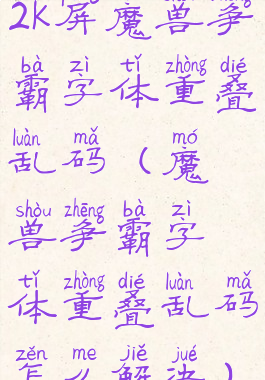 2K屏魔兽争
bà zì tǐ zhòng dié
霸字体重叠
luàn mǎ mó
乱码（魔
shòu zhēng bà zì
兽争霸字
tǐ zhòng dié luàn mǎ
体重叠乱码
zěn me jiě jué
怎么解决）